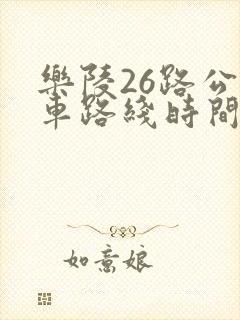 樂陵26路公
車路綫時間
如意娘